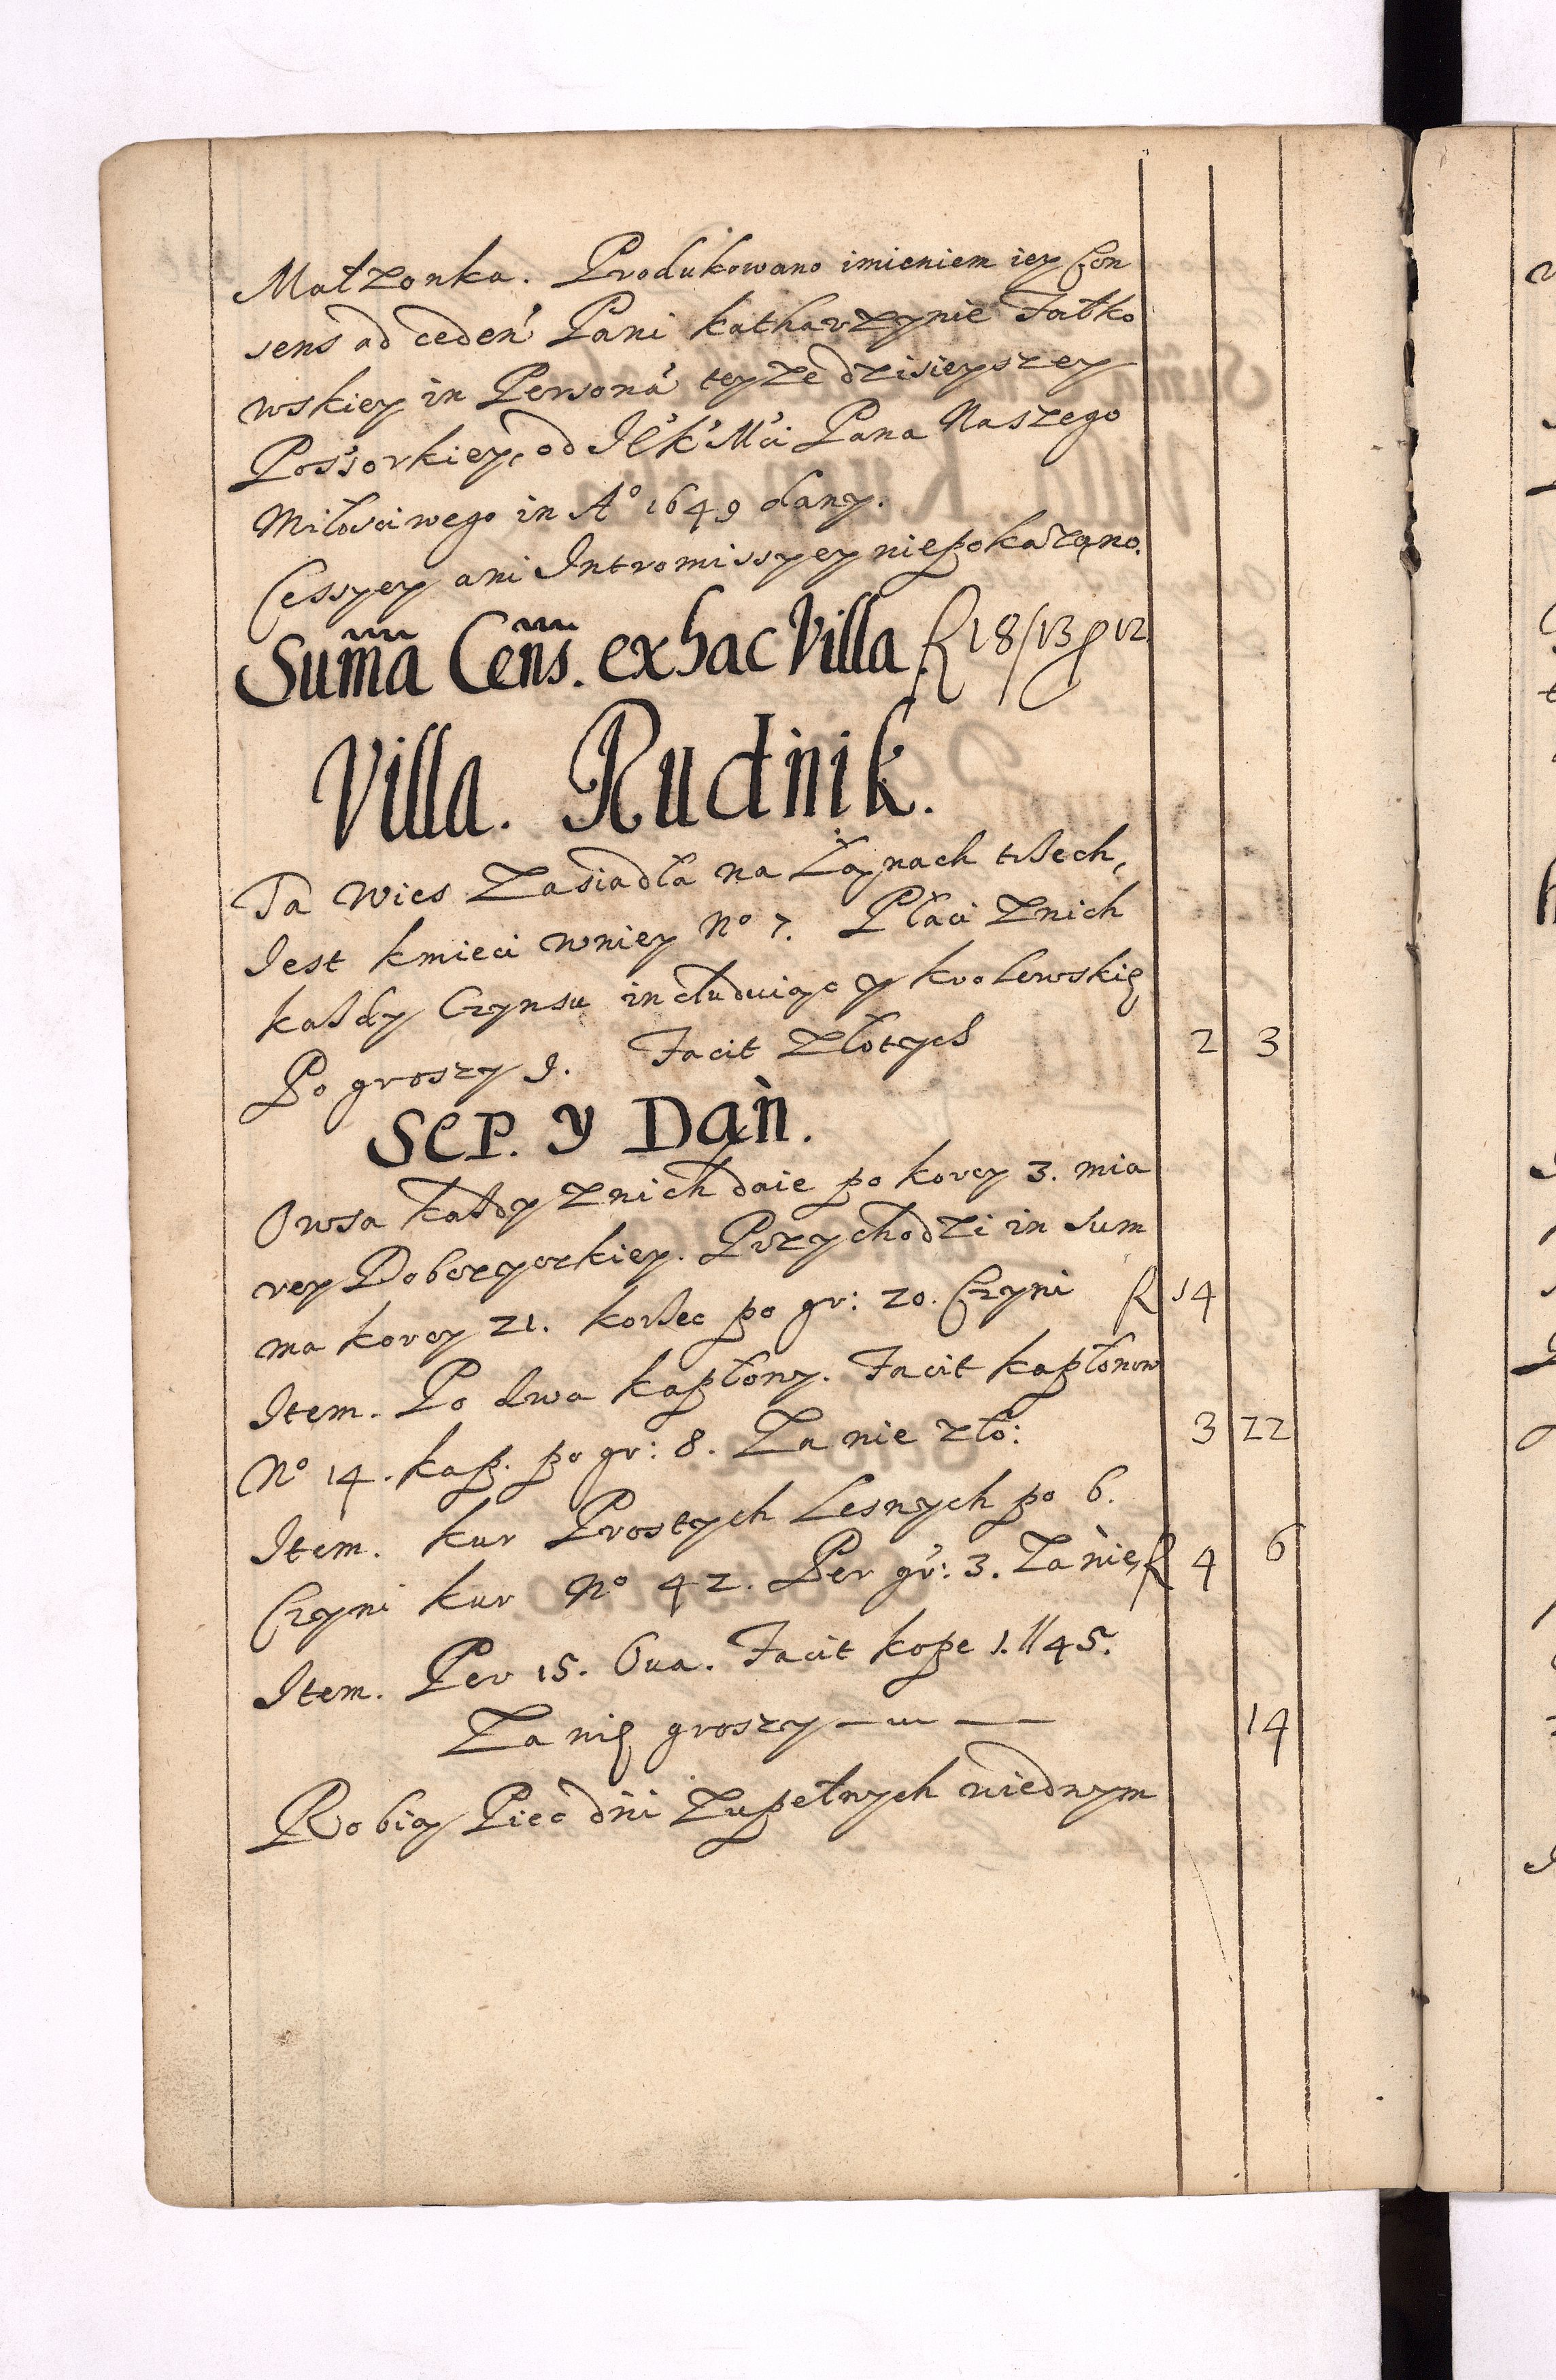 Małzonka. Produkowano imieniem iey Con
sens ad ceden̄ Pani Katharzynie Fatko
wskiey in Personā teyze dzisieyszey
Possorkiey, od JE°K°M°ci Pana Naszego
Miłosciwego in A° 1649 dany.
Cessyey ani Intromissyey niepokazano.
Sum̃a Ceñs. ex hac Villa f 18/13 ꝑ 12
Villa. Rudnik.
Ta Wies Zasiadła na Łanach trzech,
Jest kmieci wniey N° 7. Płaci Znich
każdy Czynsu includuiąc y krolewskie
Po groszy 9. Facit Złotych 2 3
SEP. Y DaŃ.
Owsa każdy Znich daie po korcy 3. mia
rey Dobczyczkiey. Przychodzi in Sum
ma korcy 21. korzec po gr: 20. Czyni f 14
Item. Po dwa kapłony. Facit kapłonow
N° 14. kap. po gr: 8. Za nie zło: 3 22
Item. kur Prostych Lesnych po 6.
Czyni kur N° 42. Per gr: 3. Zanie f 4 6
Item. Per 15. Oua. Facit kope 1. // 45.
Za nie groszy 14
Robią Piec dni Zupełnych wiednym